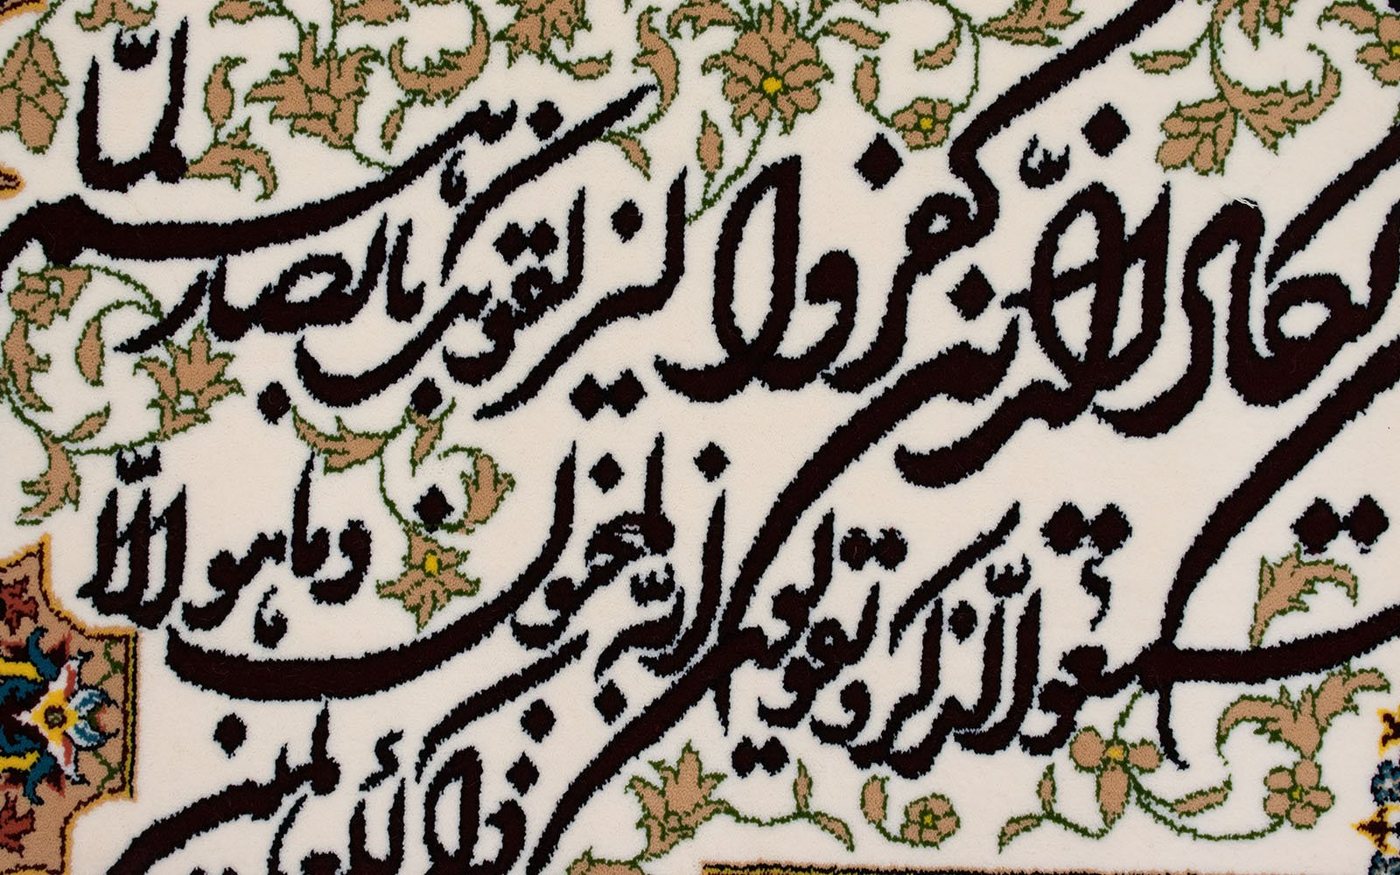 یکاد الذین کفروا لیزلقونک بابصارهم لمّا
سمعوا الذّکر و یقولون انّه لمجنون و ما هو الّا